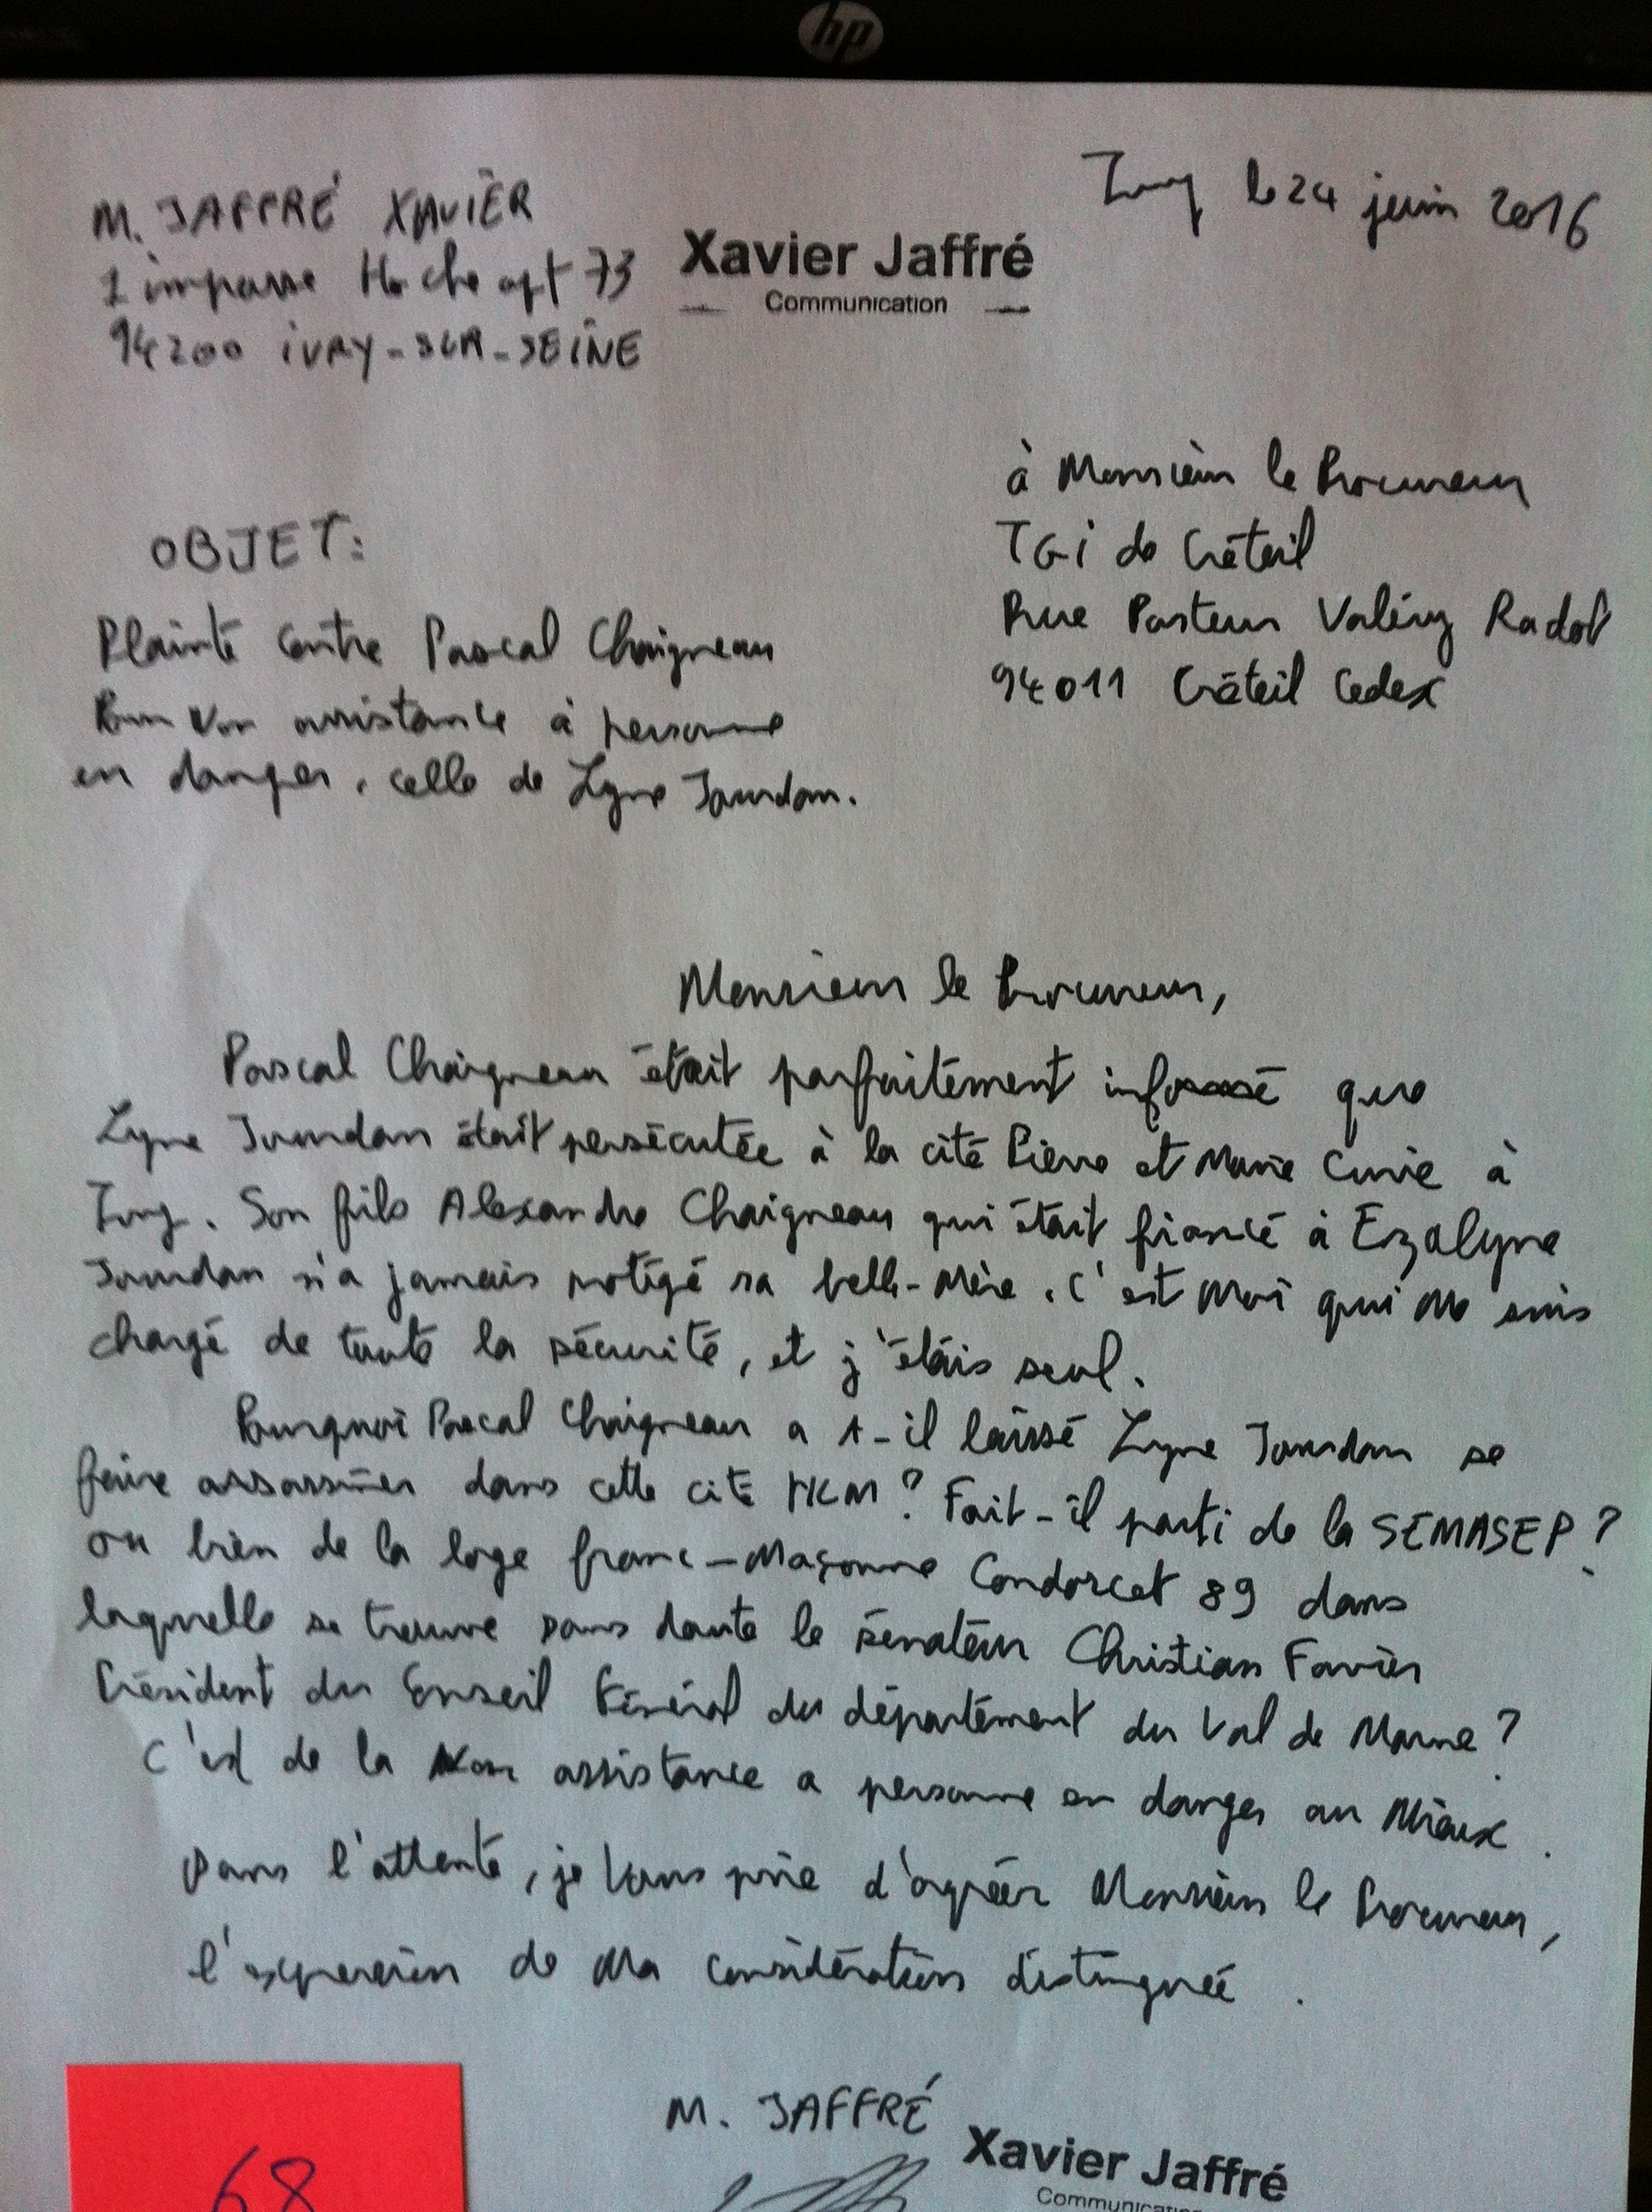 hp
M. JAFFRÉ XAVIER
1 impasse Hoche apt 73
94200 IVRY-SUR-SEINE
Xavier Jaffré
Communication
Ivry le 24 juin 2016
à Monsieur le Procureur
TGI de Créteil
Rue Pasteur Valéry Radot
94011 Créteil Cedex
OBJET:
Plainte contre Pascal Chaigneau
Pour non assistance à personne
en danger, celle de Lyne Jourdan.
Monsieur le Procureur,
Pascal Chaigneau était parfaitement informé que
Lyne Jourdan était persécutée à la cité Pierre et Marie Curie à
Ivry. Son fils Alexandre Chaigneau qui était fiancé à Ezalyne
Jourdan n'a jamais protégé sa belle-Mère. C'est moi qui me suis
chargé de toute la sécurité, et j'étais seul.
Pourquoi Pascal Chaigneau a t-il laissé Lyne Jourdan se
faire assassiner dans cette cité ? Fait-il parti de la SEMASEP ?
ou bien de la loge franc-Maçonne Condorcet 89 dans
laquelle se trouve sans doute le sénateur Christian Favier
Président du Conseil Général du département du Val de Marne ?
C'est de la Non assistance a personne en danger au Mieux.
Dans l'attente, je vous prie d'agréer Monsieur le Procureur,
l'expression de Ma considération distinguée.
M. JAFFRÉ
Xavier Jaffré
Communication
68